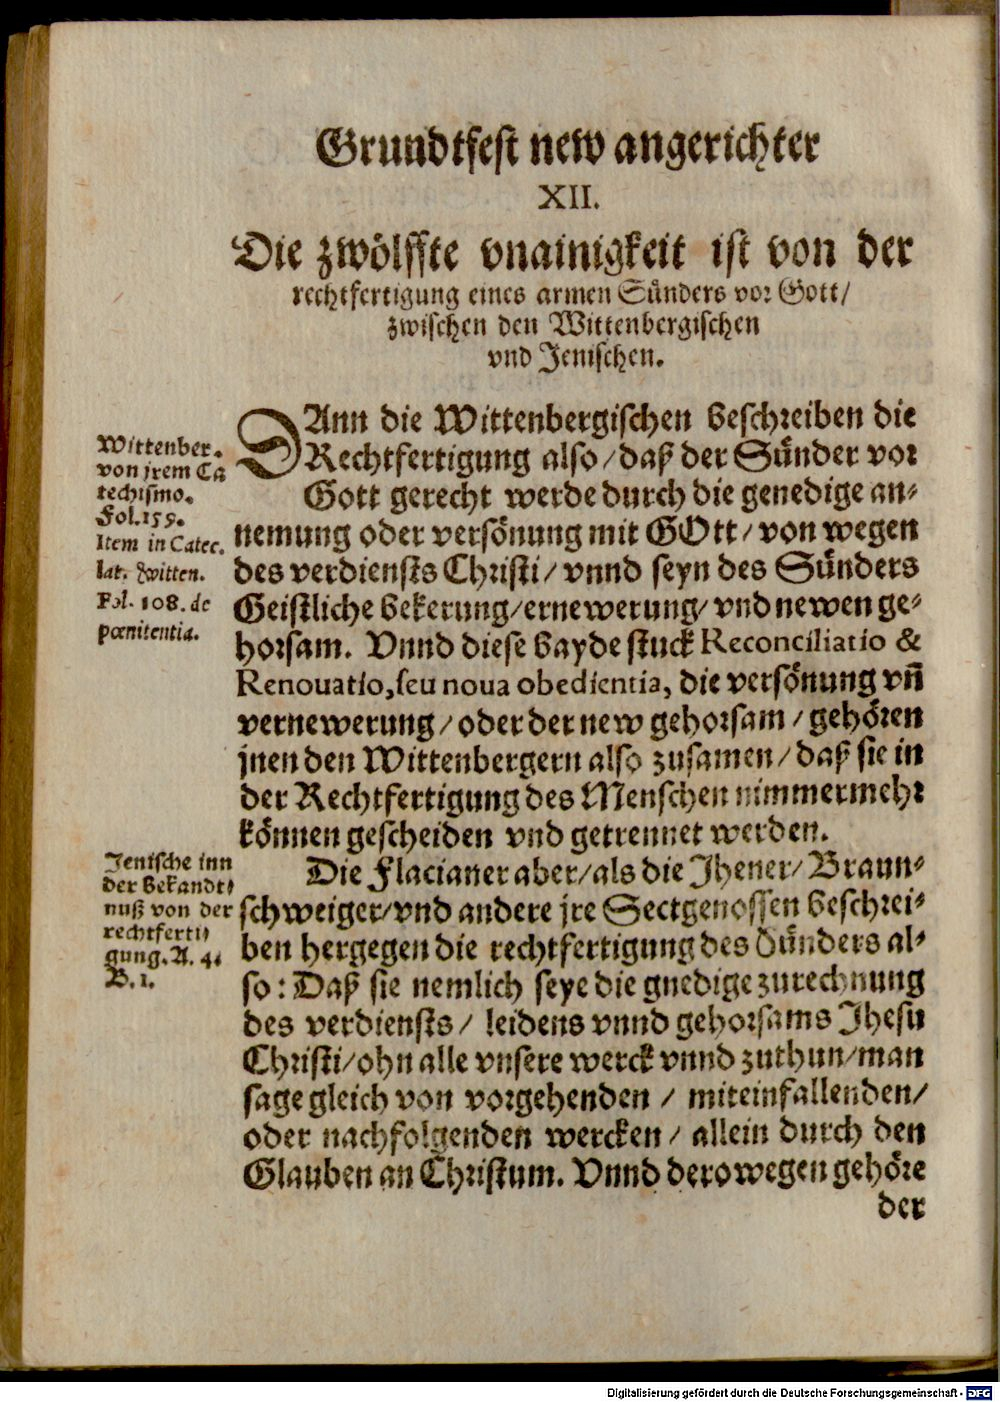 Grundtfest new angerichter
XII.
Die zwölffte vnainigkeit ist von der
rechtfertigung eines armen Sünders vor Gott/
zwischen den Wittenbergischen
vnd Jenischen.
DAnn die Wittenbergischen beschreiben die
Rechtfertigung also/daß der Sünder vor
Gott gerecht werde durch die genedige an-
nemung oder versönung mit GOtt/von wegen
des verdiensts Christi/vnnd seyn des Sünders
Geistliche bekerung/ernewerung/vnd newen ge-
horsam. Vnnd diese bayde stuck Reconciliatio &
Renouatio, seu noua obedientia, die versönung vñ
vernewerung/oder der new gehorsam/gehören
jnen den Wittenbergern also zusamen/daß sie in
der Rechtfertigung des Menschen nimmermehr
können gescheiden vnd getrennet werden.
Die Flacianer aber/als die Jhener/Braun-
schweiger/vnd andere jre Sectgenossen beschrei-
ben hergegen die rechtfertigung des Sünders al-
so: Daß sie nemlich seye die gnedige zurechnung
des verdiensts/ leidens vnnd gehorsams Jhesu
Christi/ohn alle vnsere werck vnnd zuthun/man
sage gleich von vorgehenden / miteinfallenden/
oder nachfolgenden wercken/ allein durch den
Glauben an Christum. Vnnd derowegen gehöre
der
Wittenber.
von jrem Ca
techismo.
Fol.155.
Item in Catec.
lat. Witten.
Fol. 108. de
pœnitentia.
Jenische inn
der bekandt-
nuß von der
rechtferti-
gung. A. 4.
B. 1.
Digitalisierung gefördert durch die Deutsche Forschungsgemeinschaft - DFG